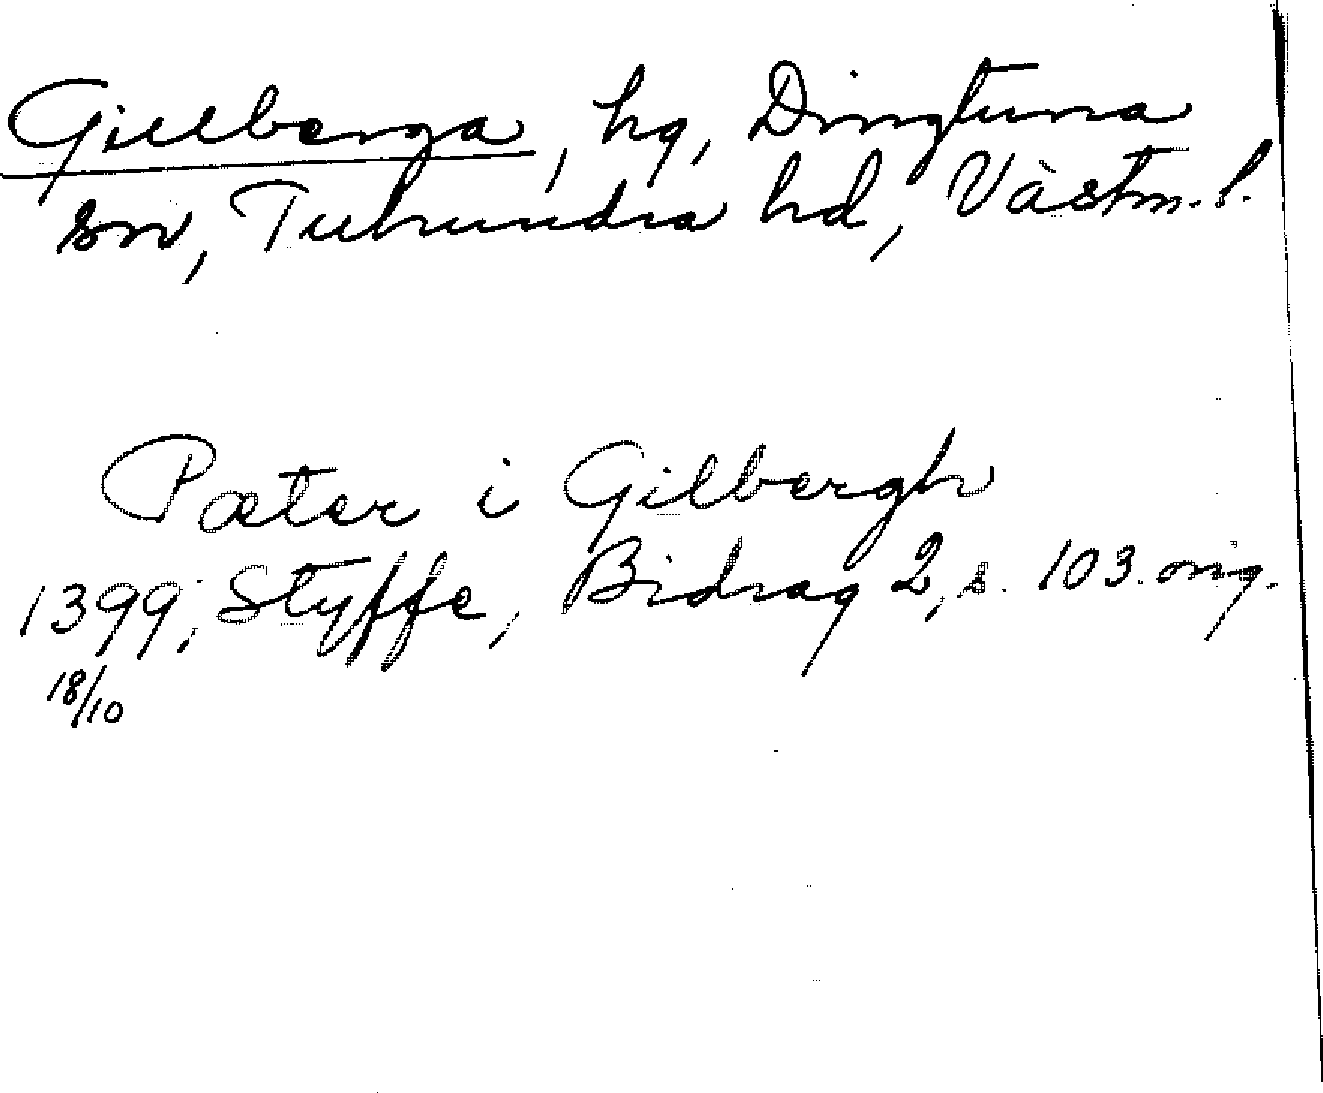 Gillberga, hg, Dingtuna
sn, Tuhundra hd, Västm. l.
Pæter i Gilbergh
1399, Styffe, Bidrag 2, s. 103. orig.
18/10